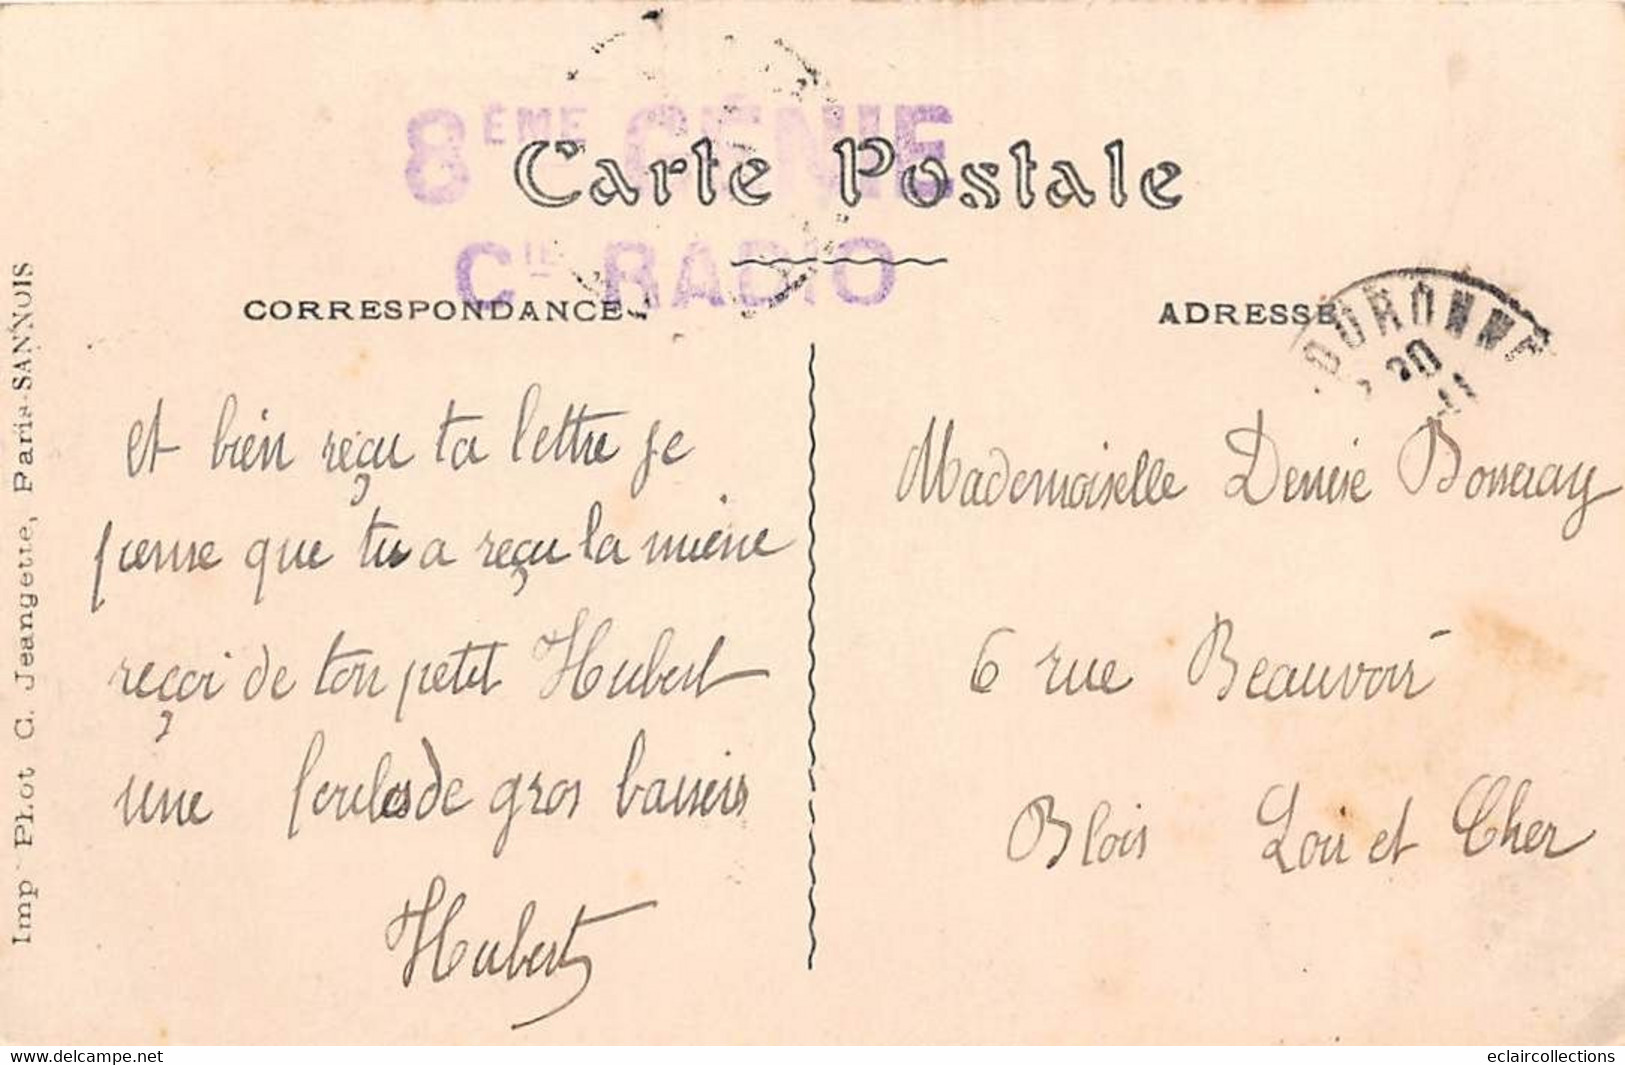 8ÈME GÉNIE
Carte Postale
Cie RADIO
CORRESPONDANCE
ADRESSE
OURONNE
20
Imp Phot C. Jeangette, Paris-SANNOIS
et bien reçu ta lettre je
pense que tu a reçu la miene
reçoi de ton petit Hubert
une foules de gros baisers
Hubert
Mademoiselle Denise
6 rue Beauvoir
Blois Loir et Cher
www.delcampe.net
eclaircollections